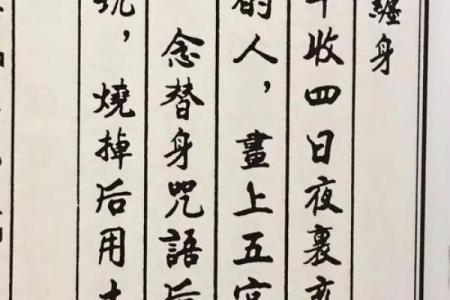 纏身
收四日夜裏
的人，畫上五
念替身咒語后
，燒掉后用